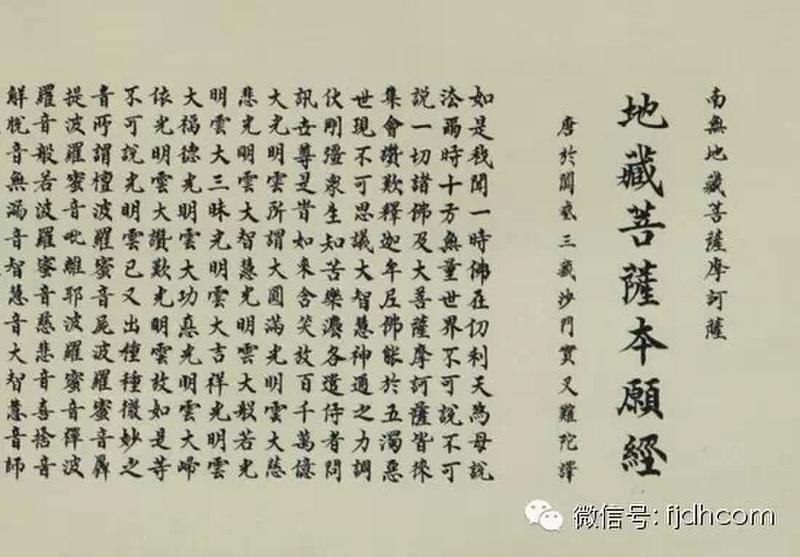 南無地藏菩薩摩訶薩
地藏菩薩本願經
唐於闐國三藏沙門實叉難陀譯
如是我聞一時佛在忉利天為母說
法爾時十方無量世界不可說不可
說一切諸佛及大菩薩摩訶薩皆來
集會讚歎釋迦牟尼佛能於五濁惡
世現不可思議大智慧神通之力調
伏剛彊眾生知苦樂灋各遣侍者問
訊世尊是時如來含笑放百千萬億
大光明雲所謂大圓滿光明雲大慈
悲光明雲大智慧光明雲大般若光
明雲大三昧光明雲大吉祥光明雲
大福德光明雲大功德光明雲大歸
依光明雲大讚歎光明雲放如是等
不可說光明雲已又出種種微妙之
音所謂檀波羅蜜音尸波羅蜜音羼
提波羅蜜音毗離耶波羅蜜音禪波
羅音般若波羅蜜音慈悲音喜捨音
解脫音無漏音智慧音大智慧音師
微信号: fjdhcom